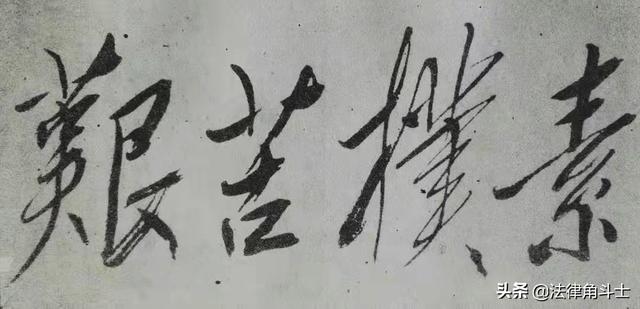 艱苦樸素
头条 @法律角斗士